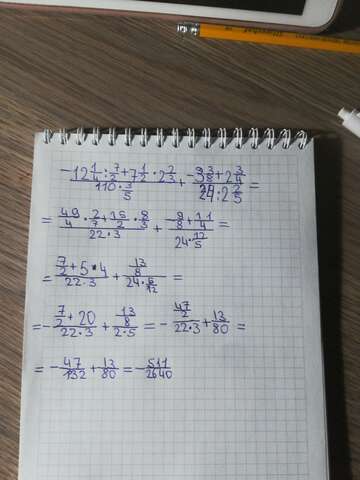 -12 1/4 : 7/2 + 7 1/2 · 2 2/3 / 110 · 3/5 + -3 3/8 + 2 3/4 / 24 : 2 2/5 =
= 49/4 · 2/7 + 15/2 · 8/3 / 22 · 3 + -9/8 + 11/4 / 24 · 12/5 =
= 7/2 + 5 · 4 / 22 · 3 + 13/8 / 24 · 5/12 =
= - 7/2 + 20 / 22 · 3 + 13/8 / 2 · 5 = - 47/2 / 22 · 3 + 13/80 =
= - 47/132 + 13/80 = - 511/2640